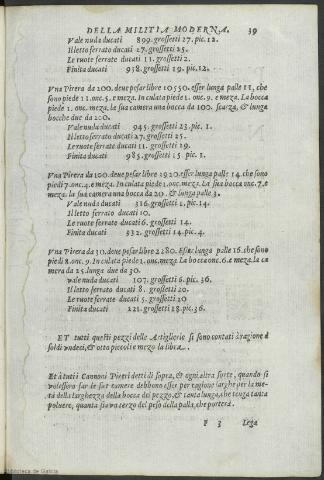 DELLA MILITIA MODERNA. 39
Vale nuda ducati 899. grossetti 27. pic. 12.
Il letto ferrato ducati 27. grossetti 25.
Le ruote ferrate ducati 11. grossetti 2.
Finita ducati 938. grossetti 19. pic. 12.
Vna Pirera da 200. deue pesar libre 10550. esser lunga palle 11, che
sono piede 11. onc. 5. e meza. In culata piede 1. onc. 9. e meza. La bocca
piede 1. onc. meza. La sua camera una bocca da 100. scarza, & lunga
bocche due da 200.
Vale nuda ducati 945. grossetti 23. pic. 1.
Il letto ferrato ducati 27. grossetti 25.
Le ruote ferrate ducati 11. grossetti 29.
Finita ducati 985. grossetti 15 pic. 1.
Vna Pirera da 100. deue pesar libre 2920. esser lunga palle 14. che sono
piedi 7. onc. 4. e meza. In culata piede 1. onc. meza. La sua bocca onc. 7. e
meza. La sua camera una bocca da 20. & lunga palle 3.
Vale nuda ducati 316. grossetti 1. pic. 14.
Il letto ferrato ducati 10.
Le ruote ferrate ducati 6. grossetti 14.
Finita ducati 332. grossetti 14. pic. 4.
Vna Pirera da 30. deue pesar libre 2280. Esser lunga palle 16. che sono
piedi 8. onc. 9. In culata piede 1. onc. meza La bocca onc. 6. e meza. la ca
mera da 25. lunga due da 30.
Vale nuda ducati 107. grossetti 6. pic. 36.
Il letto ferrato ducati 8. grossetti 20.
Le ruote ferrate ducati 5. grossetti 20
Finita ducati 221. grossetti 18. pic. 36.
ET tutti questi pezzi delle Artigliarie si sono contati à ragione d
soldi undeci, & otto piccoli e mezo la libra.
Et à tutti i Cannoni Pireri detti di sopra, & ogni altra sorte, quando si
volessero far de sue camere debbono esser per ragione larghe per la me-
tà della larghezza della bocca del pezzo, & tanta lunga, che tenga tanta
poluere, quanta sia un terzo del peso della palla, che porterà.
F 3 Lega
Biblioteca de Galicia